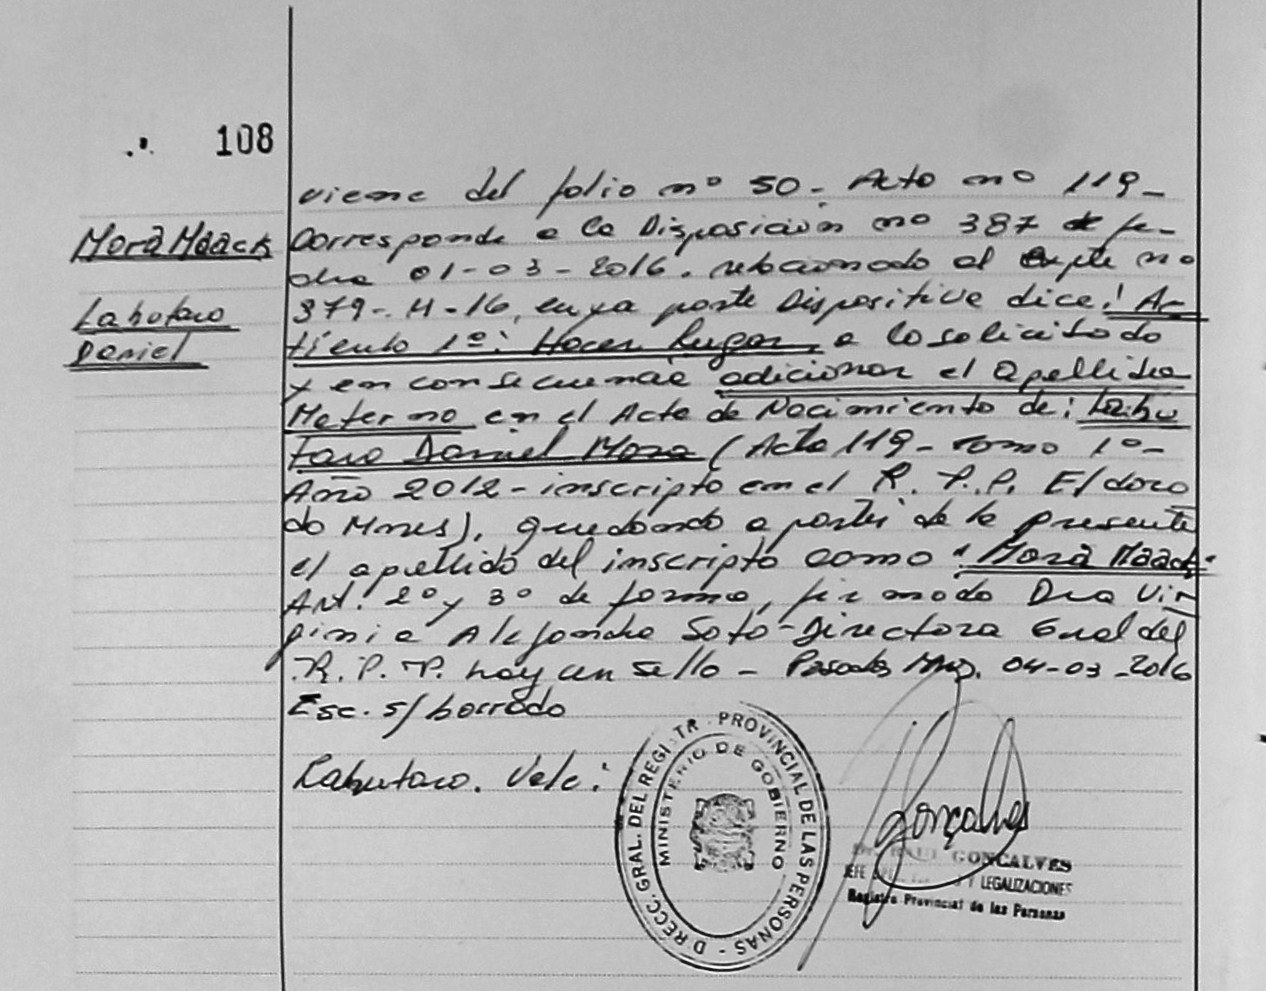 108
Mora Maack
Lahutaro
Daniel
viene del folio nº 50. Acta nº 119-
Corresponde a la Disposición nº 387 de fe-
cha 01-03-2016. relacionado al Expte nº
379-. H-16, cuya parte Dispositiva dice: Ar-
tículo 1º: Hacer lugar a lo solicitado
y en consecuencia adicionar el apellido
Materno en el Acta de Nacimiento de: Lahu
taro Daniel Mora (Acta 119- tomo 1º-
Año 2012- inscripto en el R. P. P. Eldora
do Mnes), quedando a partir de la presente
el apellido del inscripto como "Mora Maack"
Art. 2º y 3º de forma, firmado Dra Vir
ginia Alejandra Soto-Directora Gral del
R. P. P. hay un sello - Posadas Mnes. 04-03-2016
Esc. s/ borrado
Lahutaro. Vale:
DIRECC. GRAL. DEL REGISTRO PROVINCIAL DE LAS PERSONAS -
MINISTERIO DE GOBIERNO
Gonçalves
RAUL GONCALVES
JEFE Y LEGALIZACIONES
Registro Provincial de las Personas